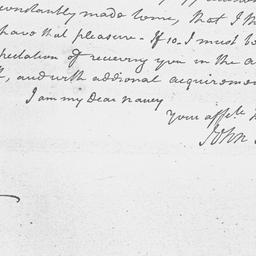 constantly made some, that I h
have that pleasure - If so. I must b
pectation of receiving you in the a
and with addional acquiremen
I am my Dear Nancy
Your affte
John